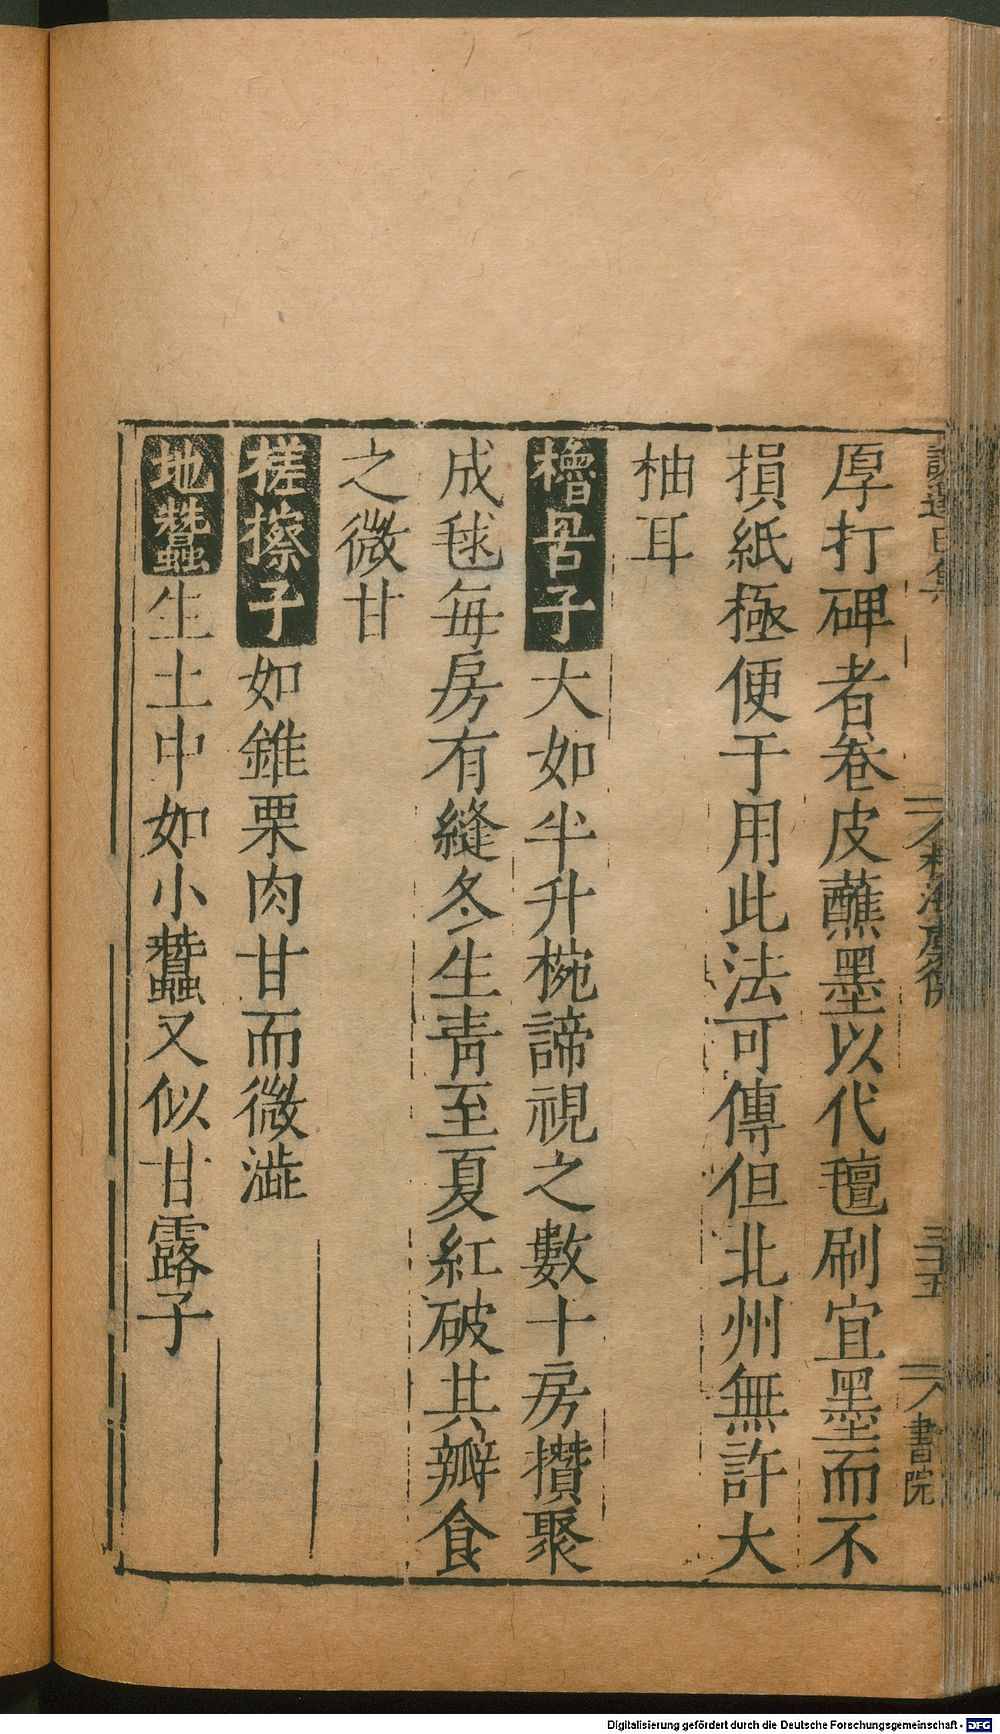 厚打碑者卷皮蘸墨以代氊刷宜墨而不
損紙極便于用此法可傳但北州無許大
柚耳
櫓罟子大如半升椀諦視之數十房攢聚
成毬每房有縫冬生青至夏紅破其瓣食
之微甘
搓擦子如錐栗肉甘而微澁
地蠶生土中如小蠶又似甘露子
三十五
書院
Digitalisierung gefördert durch die Deutsche Forschungsgemeinschaft - DFG